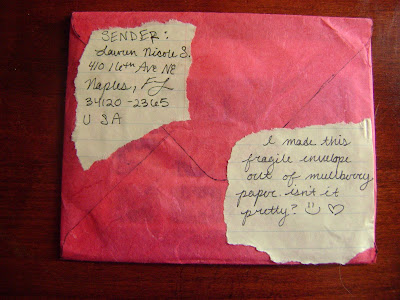 SENDER:
Lauren Nicole S.
410 16th Ave NE
Naples, FL
34120-2365
USA
I made this
fragile envelope
out of mullberry
paper. isn't it
pretty? ☺ ♡